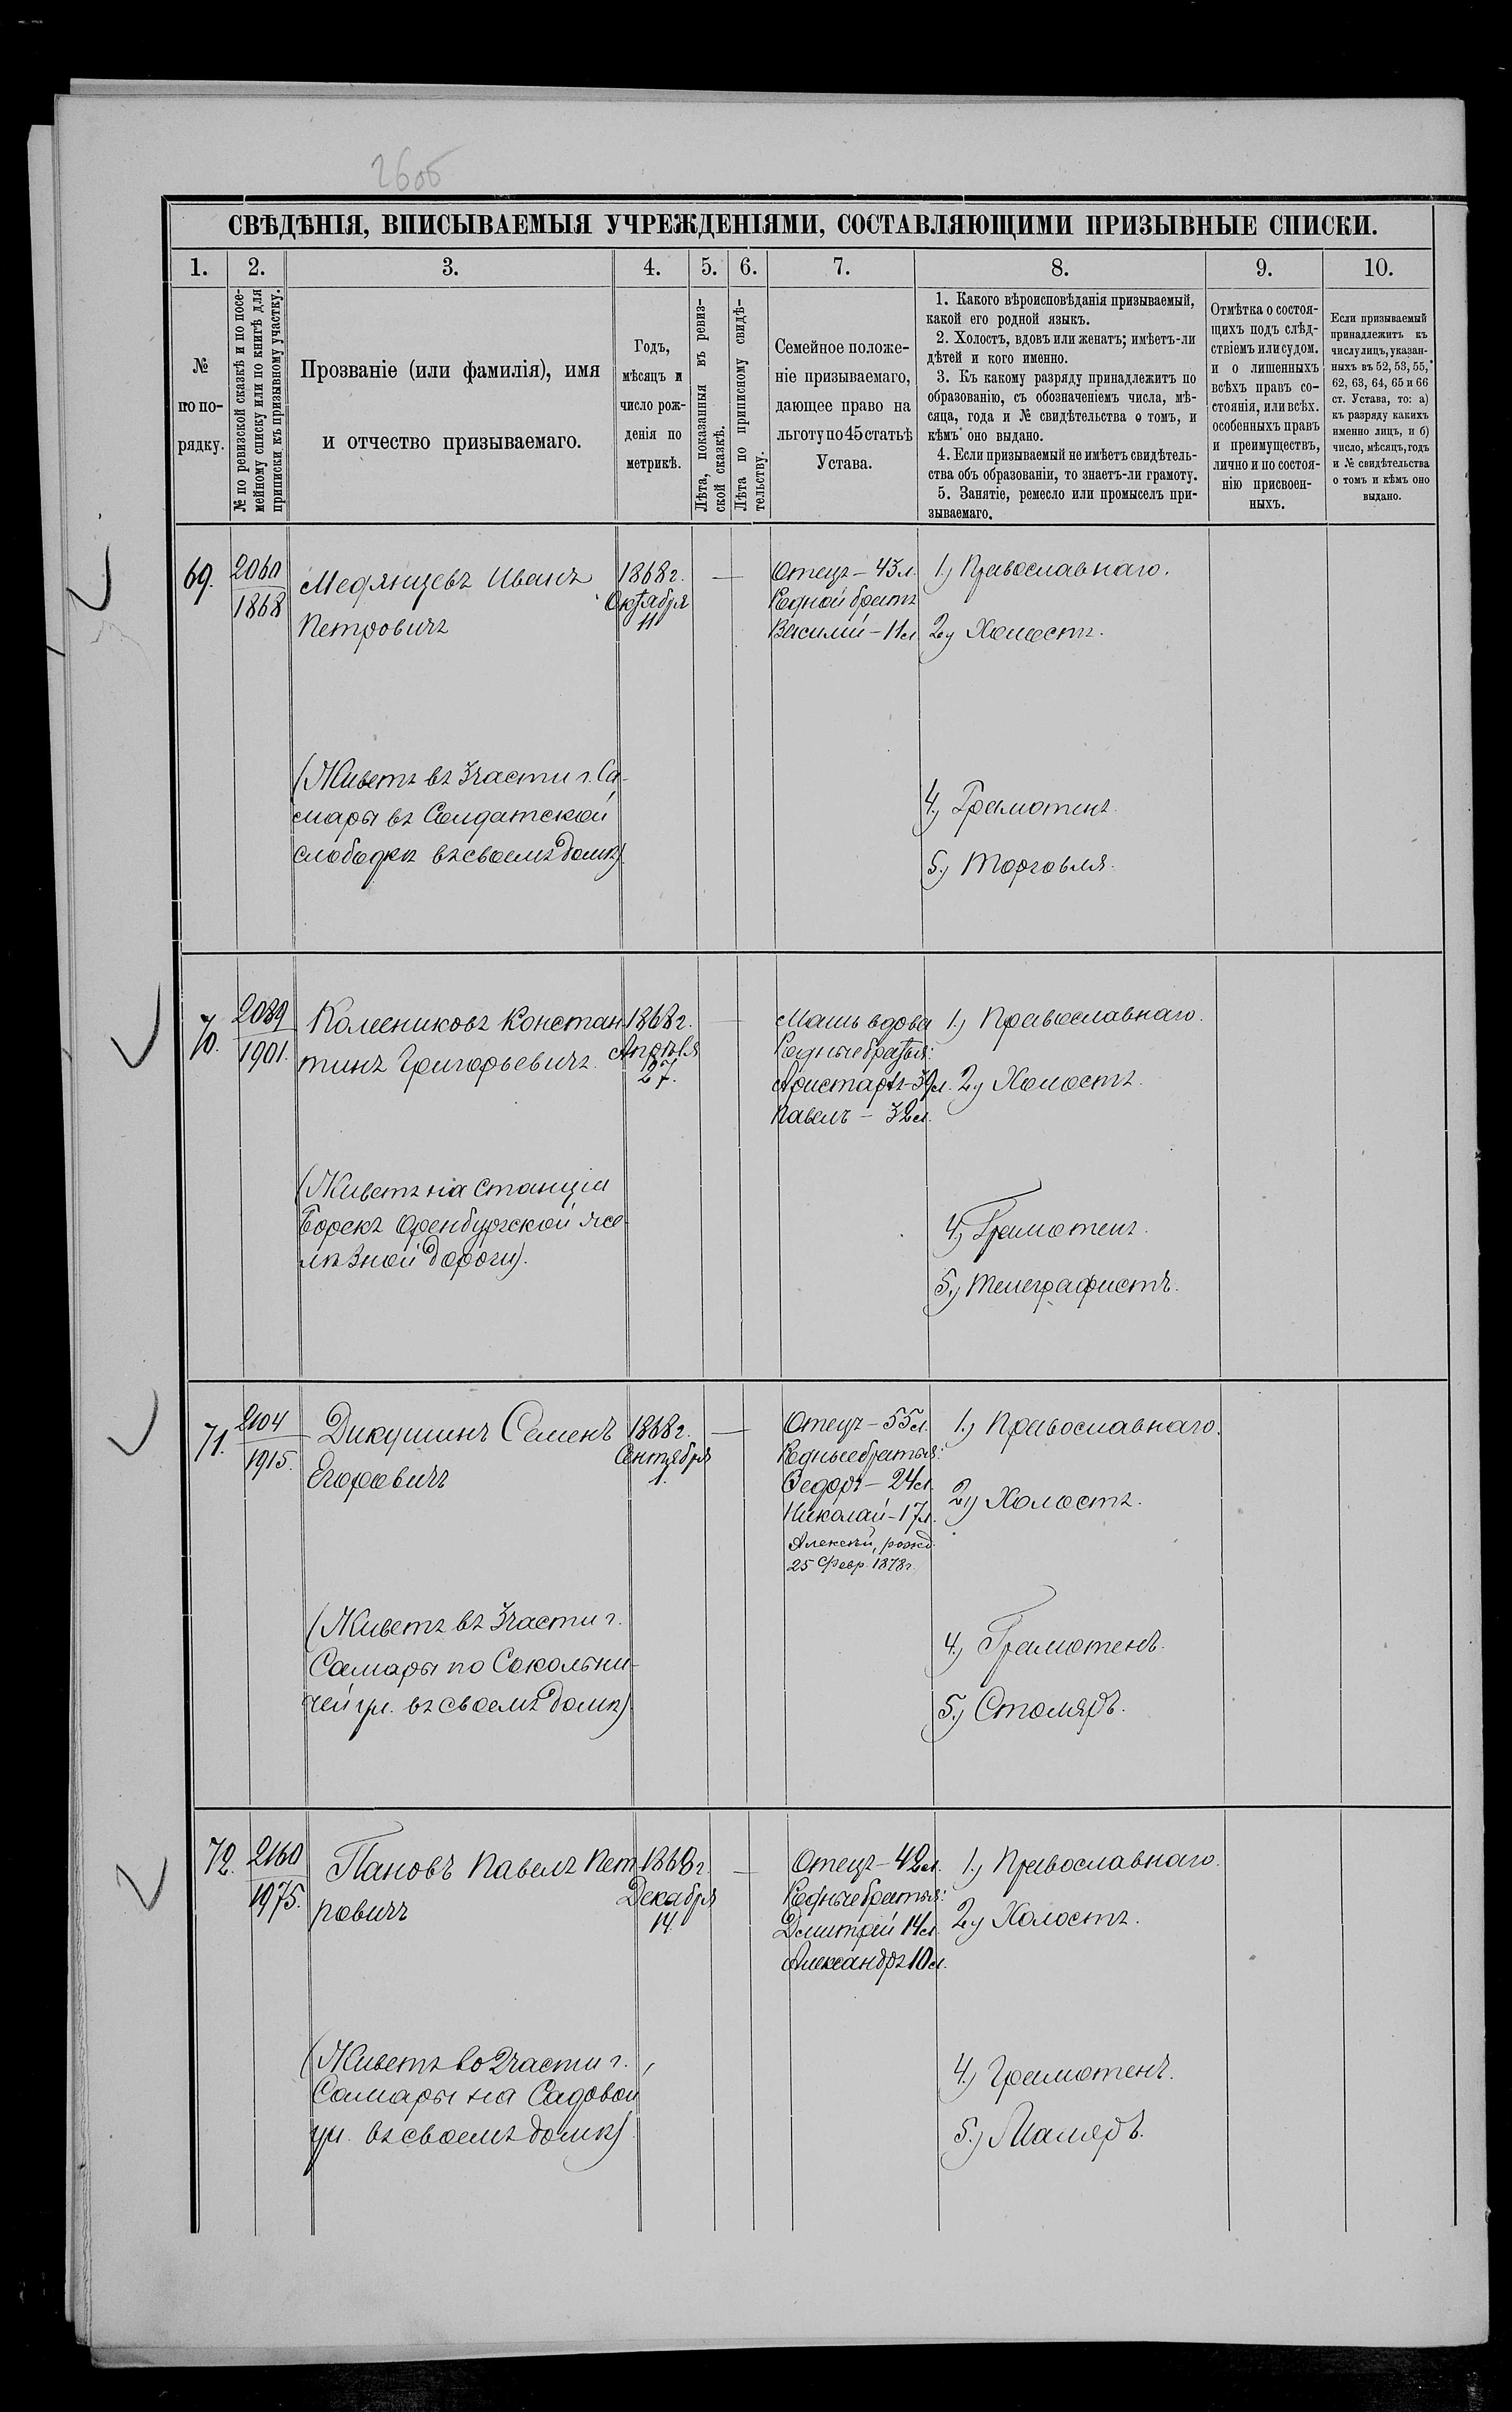 260б
СВѢДѢНІЯ, ВПИСЫВАЕМЫЯ УЧРЕЖДЕНІЯМИ, СОСТАВЛЯЮЩИМИ ПРИЗЫВНЫЕ СПИСКИ.
1. 2. 3. 4. 5. 6. 7. 8. 9. 10.
№
по по-
рядку.
№ по ревизской сказкѣ и по посе-
мейному списку или по книгѣ для
приписки къ призывному участку.
Прозваніе (или фамилія), имя
и отчество призываемаго.
Годъ,
мѣсяцъ и
число рож-
денія по
метрикѣ.
Лѣта, показанныя въ ревиз-
ской сказкѣ.
Лѣта по приписному свидѣ-
тельству.
Семейное положе-
ніе призываемаго,
дающее право на
льготу по 45 статьѣ
Устава.
1. Какого вѣроисповѣданія призываемый,
какой его родной языкъ.
2. Холостъ, вдовъ или женатъ; имѣетъ-ли
дѣтей и кого именно.
3. Къ какому разряду принадлежитъ по
образованію, съ обозначеніемъ числа, мѣ-
сяца, года и № свидѣтельства о томъ, и
кѣмъ оно выдано.
4. Если призываемый не имѣетъ свидѣтель-
ства объ образованіи, то знаетъ-ли грамоту.
5. Занятіе, ремесло или промыселъ при-
зываемаго.
Отмѣтка о состоя-
щихъ подъ слѣд-
ствіемъ или судом.
и о лишенныхъ
всѣхъ правъ со-
стоянія, или всѣх.
особенныхъ правъ
и преимуществъ,
лично и по состоя-
нію присвоен-
ныхъ.
Если призываемый
принадлежитъ къ
числу лицъ, указан-
ныхъ въ 52, 53, 55,
62, 63, 64, 65 и 66
ст. Устава, то: а)
къ разряду какихъ
именно лицъ, и б)
число, мѣсяцъ, годъ
и № свидѣтельства
о томъ и кѣмъ оно
выдано.
69.
2060
1868
Медянцевъ Иванъ
Петровичъ
(Живетъ въ 3 части г. Са-
мары въ Солдатской
слободкѣ въ своемъ домѣ)
1868 г.
Октября
11
—
Отецъ — 43 л.
Родной братъ
Василій — 11 л.
1.) Православнаго.
2) Холостъ.
4.) Грамотенъ.
5.) Торговля.
70.
2089
1901.
Колесниковъ Констан
тинъ Григорьевичъ.
(Живетъ на станціи
Борскъ Оренбургской же-
лѣзной дороги).
1868 г.
Апрѣля
27.
Мать вдова
Родные братья:
Аристархъ — 39 л.
Павелъ — 32 л.
1.) Православнаго.
2) Холостъ.
4.) Грамотенъ.
5.) Телеграфистъ.
71.
2104
1915.
Дикушинъ Семенъ
Егоровичъ
(Живетъ въ 3 части г.
Самары по Сокольни-
чей ул. въ своемъ домѣ)
1868 г.
Сентября
1.
—
Отецъ — 55 л.
Родные братья:
Ѳедоръ — 24 л.
Николай — 17 л.
Алексѣй, рожд.
25 Февр. 1878 г.
1.) Православнаго.
2) Холостъ.
4.) Грамотенъ.
5.) Столяръ.
72.
2160
1975.
Пановъ Павелъ Пет
ровичъ
(Живетъ во 2 части г.
Самары на Садовой
ул. въ своемъ домѣ)
1868 г.
Декабря
14.
—
Отецъ — 42 л.
Родные братья:
Дмитрій 14 л.
Александръ 10 л.
1.) Православнаго.
2) Холостъ.
4.) Грамотенъ.
5.) Маляръ.